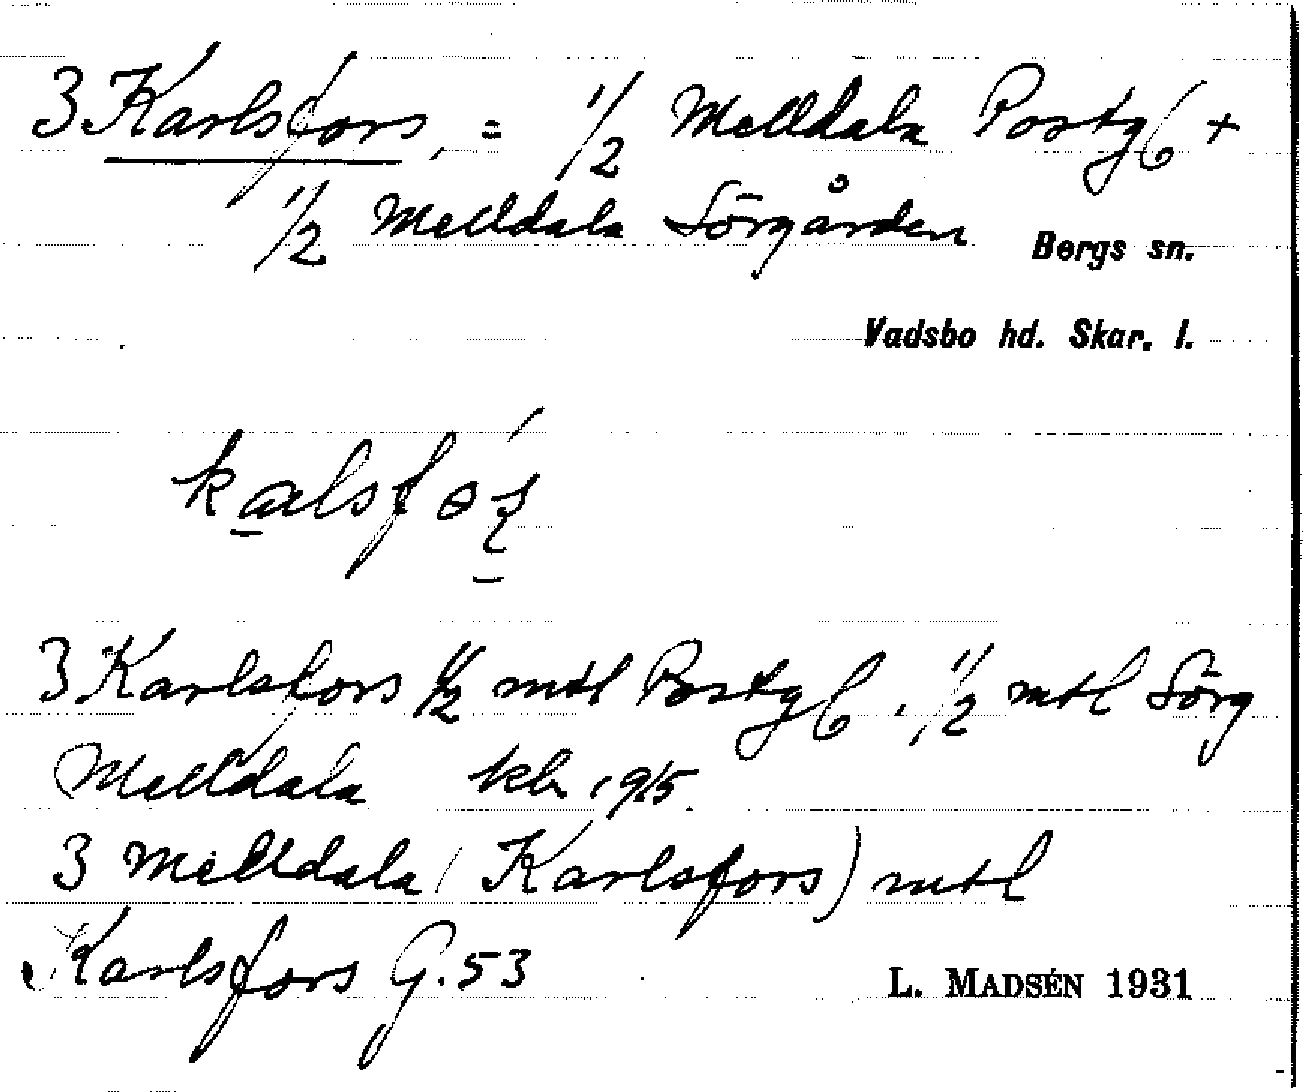 3 Karlsfors, = 1/2 Melldala Postg 6 +
1/2 Melldala Sörgården
Bergs sn.
Vadsbo hd. Skar. l.
3 Karlsfors 1/2 mtl Postg 6, 1/2 mtl Sörg
Melldala kb 1915.
3 Melldala (Karlsfors) mtl
Karlsfors G. 53
L. MADSÉN 1931